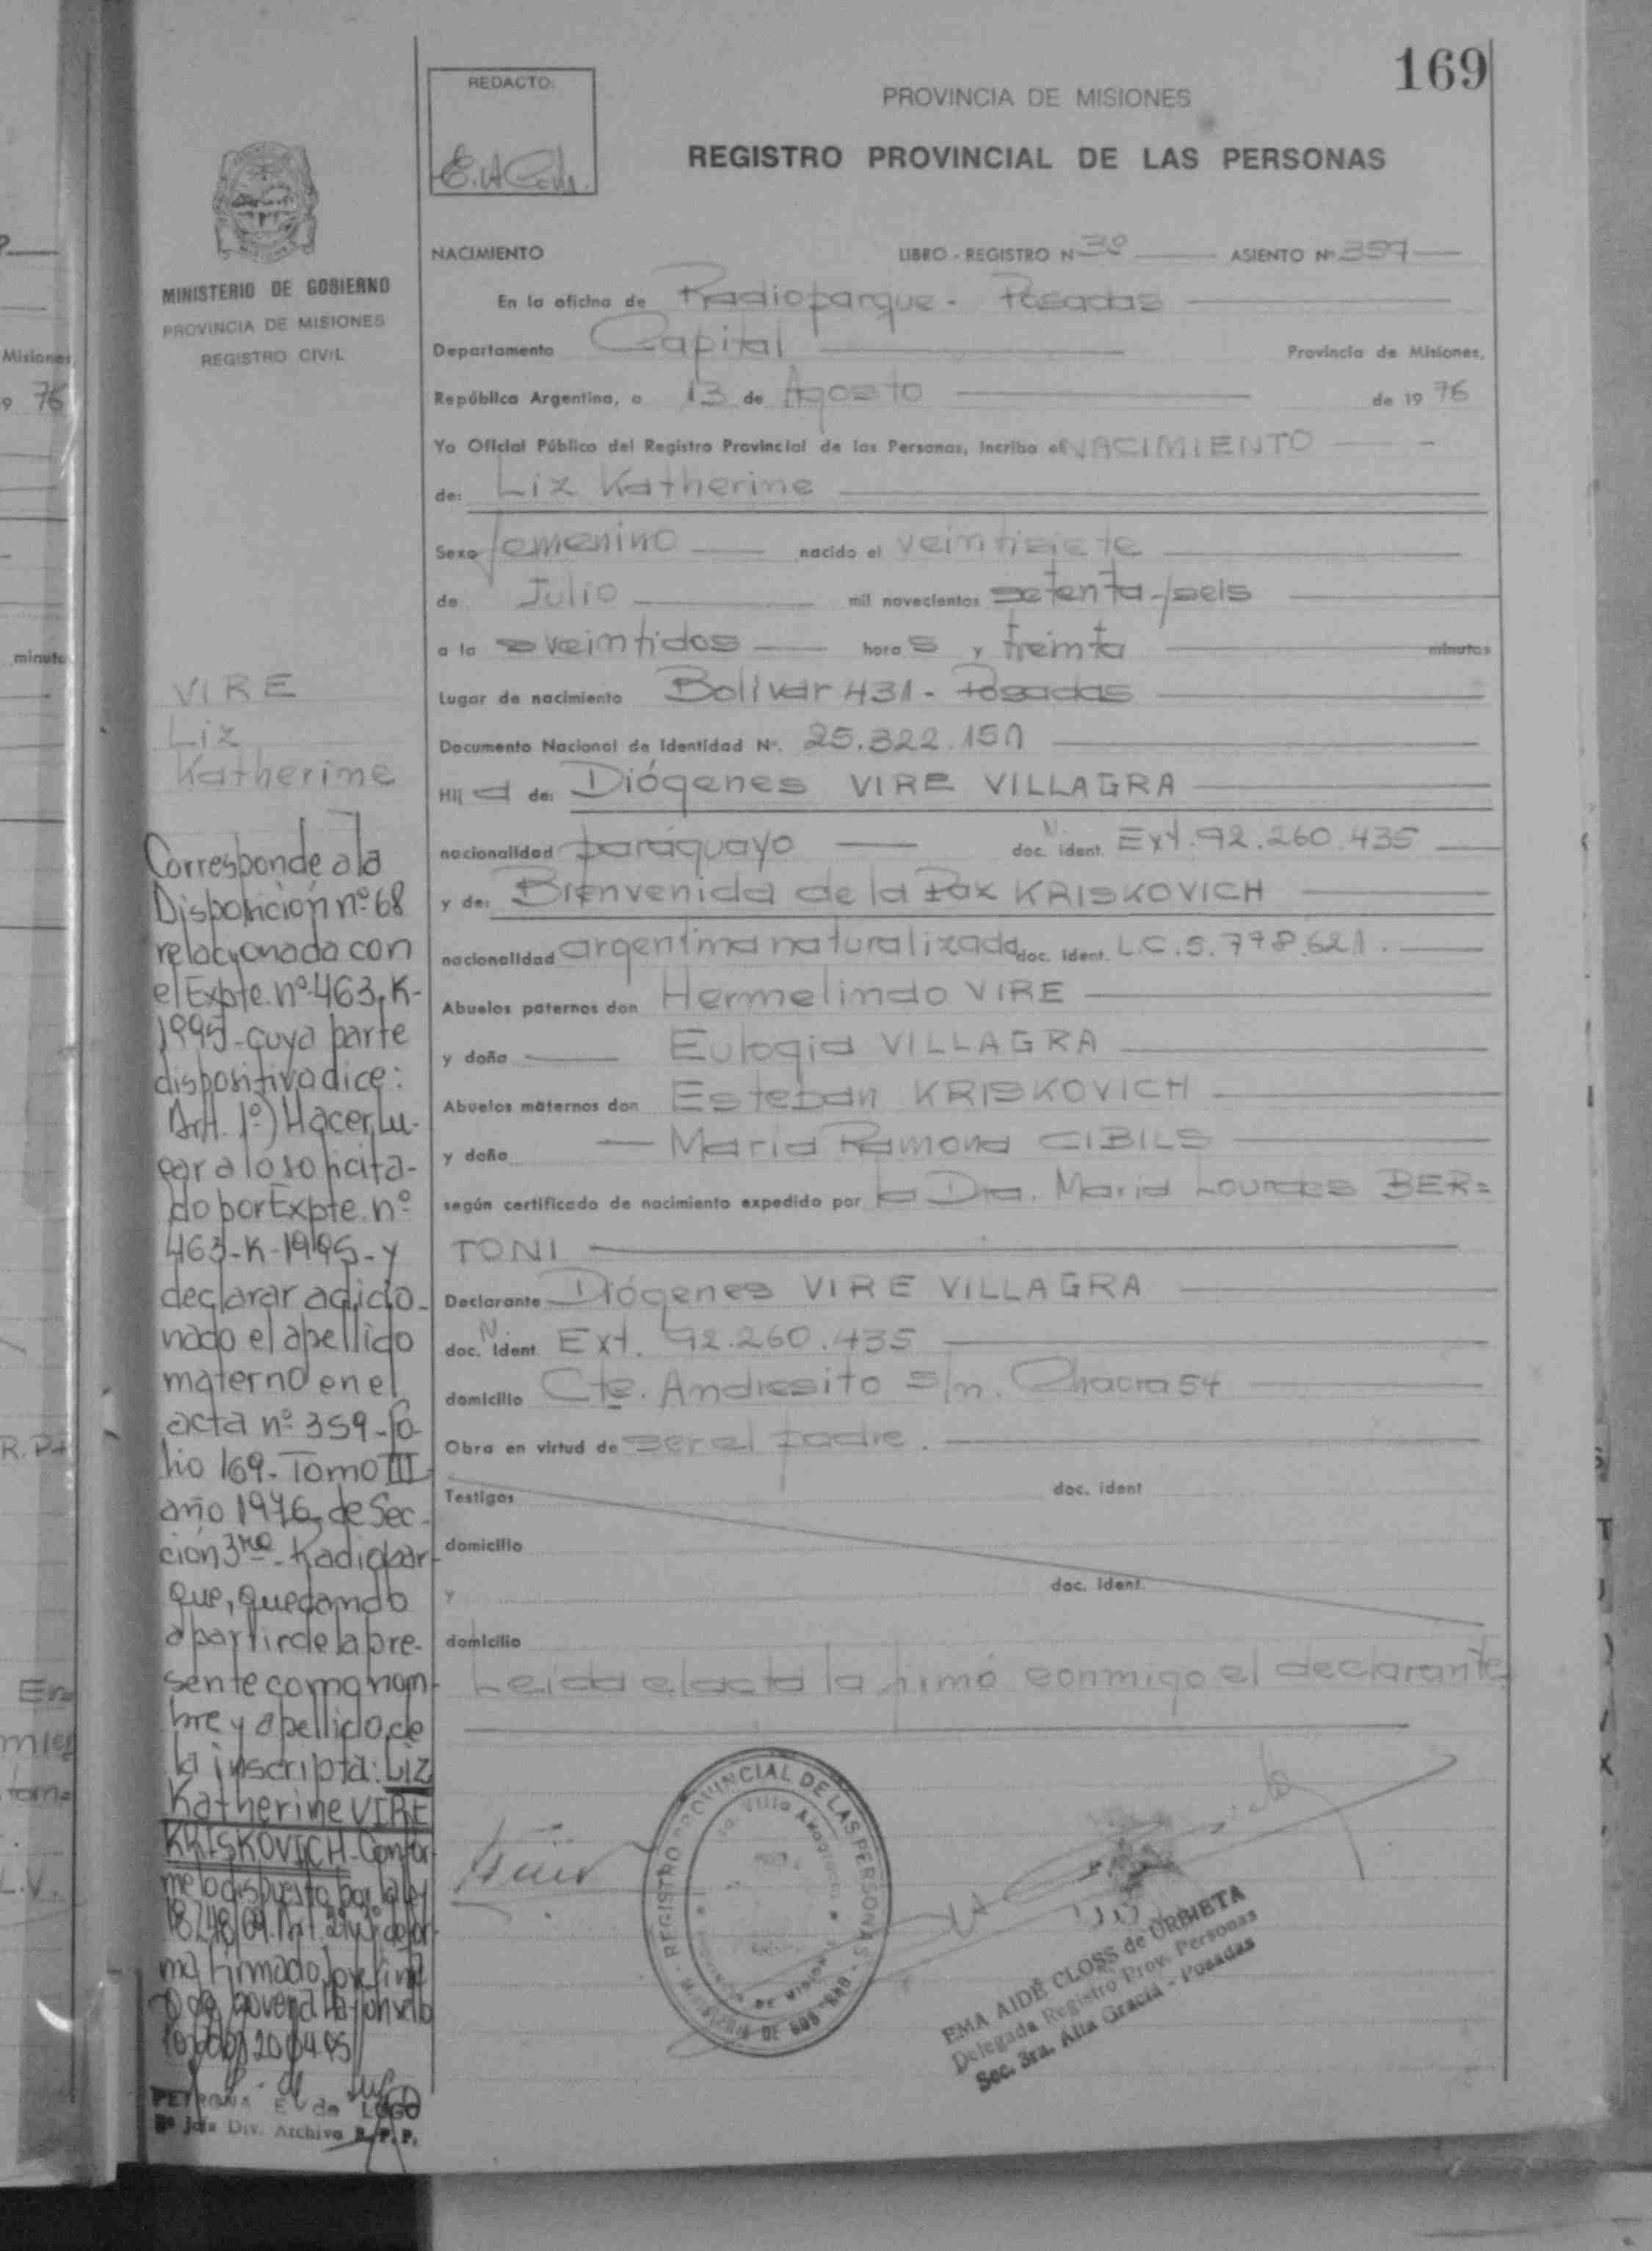 169
REDACTO:
PROVINCIA DE MISIONES
REGISTRO PROVINCIAL DE LAS PERSONAS
MINISTERIO DE GOBIERNO
PROVINCIA DE MISIONES
REGISTRO CIVIL
NACIMIENTO LIBRO - REGISTRO Nº 3º ASIENTO Nº 359
En la oficina de Radioparque - Posadas
Departamento Capital Provincia de Misiones,
República Argentina, a 13 de Agosto de 19 76
Yo Oficial Público del Registro Provincial de las Personas, incribo el NACIMIENTO
de: Liz Katherine
Sexo femenino nacido el veintisiete
de Julio mil novecientos setenta y seis
a la s veintidos hora s y treinta minutos
Lugar de nacimiento Bolivar 431 - Posadas
Documento Nacional de Identidad Nº. 25.322.151
Hij a de: Diógenes VIRE VILLAGRA
nacionalidad paraguayo doc. ident. Ext. 92.260.435
y de: Bienvenida de la Paz KRISKOVICH
nacionalidad argentina naturalizada doc. ident. L.C. 5.778.621.
Abuelos paternos don Hermelindo VIRE
y doña Eulogia VILLAGRA
Abuelos maternos don Esteban KRISKOVICH
y doña Maria Ramona CIBILS
según certificado de nacimiento expedido por la Dra. Maria Lourdes BER=
TONI
Declarante Diógenes VIRE VILLAGRA
doc. ident. Ext. 92.260.435
domicilio Cte. Andresito s/n. Chacra 54
Obra en virtud de ser el padre.
Testigos doc. ident
domicilio
y doc. ident.
domicilio
Leida el acta la firmó conmigo el declarante
VIRE
Liz
Katherine
Corresponde a la
Disposición nº 68
relacionada con
el Expte. nº 463-K-
1995-cuya parte
dispositiva dice:
Art. 1º) Hacer Lu-
gar a lo solicita-
do por Expte. nº
463-K-1995-y
declarar adicio-
nado el apellido
materno en el
acta nº 359-fo-
lio 169-Tomo III
año 1976, de Sec-
ción 3ra-Radiopar-
que, quedando
a partir de la pre-
sente como nom-
bre y apellido de
la inscripta: Liz
Katherine VIRE
KRISKOVICH-Confor-
me lo dispuesto por la ley
18248/69
PETRONA E. de LUGO
Jefa Div. Archivo R.P.P.
REGISTRO PROVINCIAL DE LAS PERSONAS
EMA AIDÉ CLOSS de URBIETA
Delegada Registro Prov. Personas
Sec. 3ra. Alta Gracia - Posadas
Misiones
76
minuto